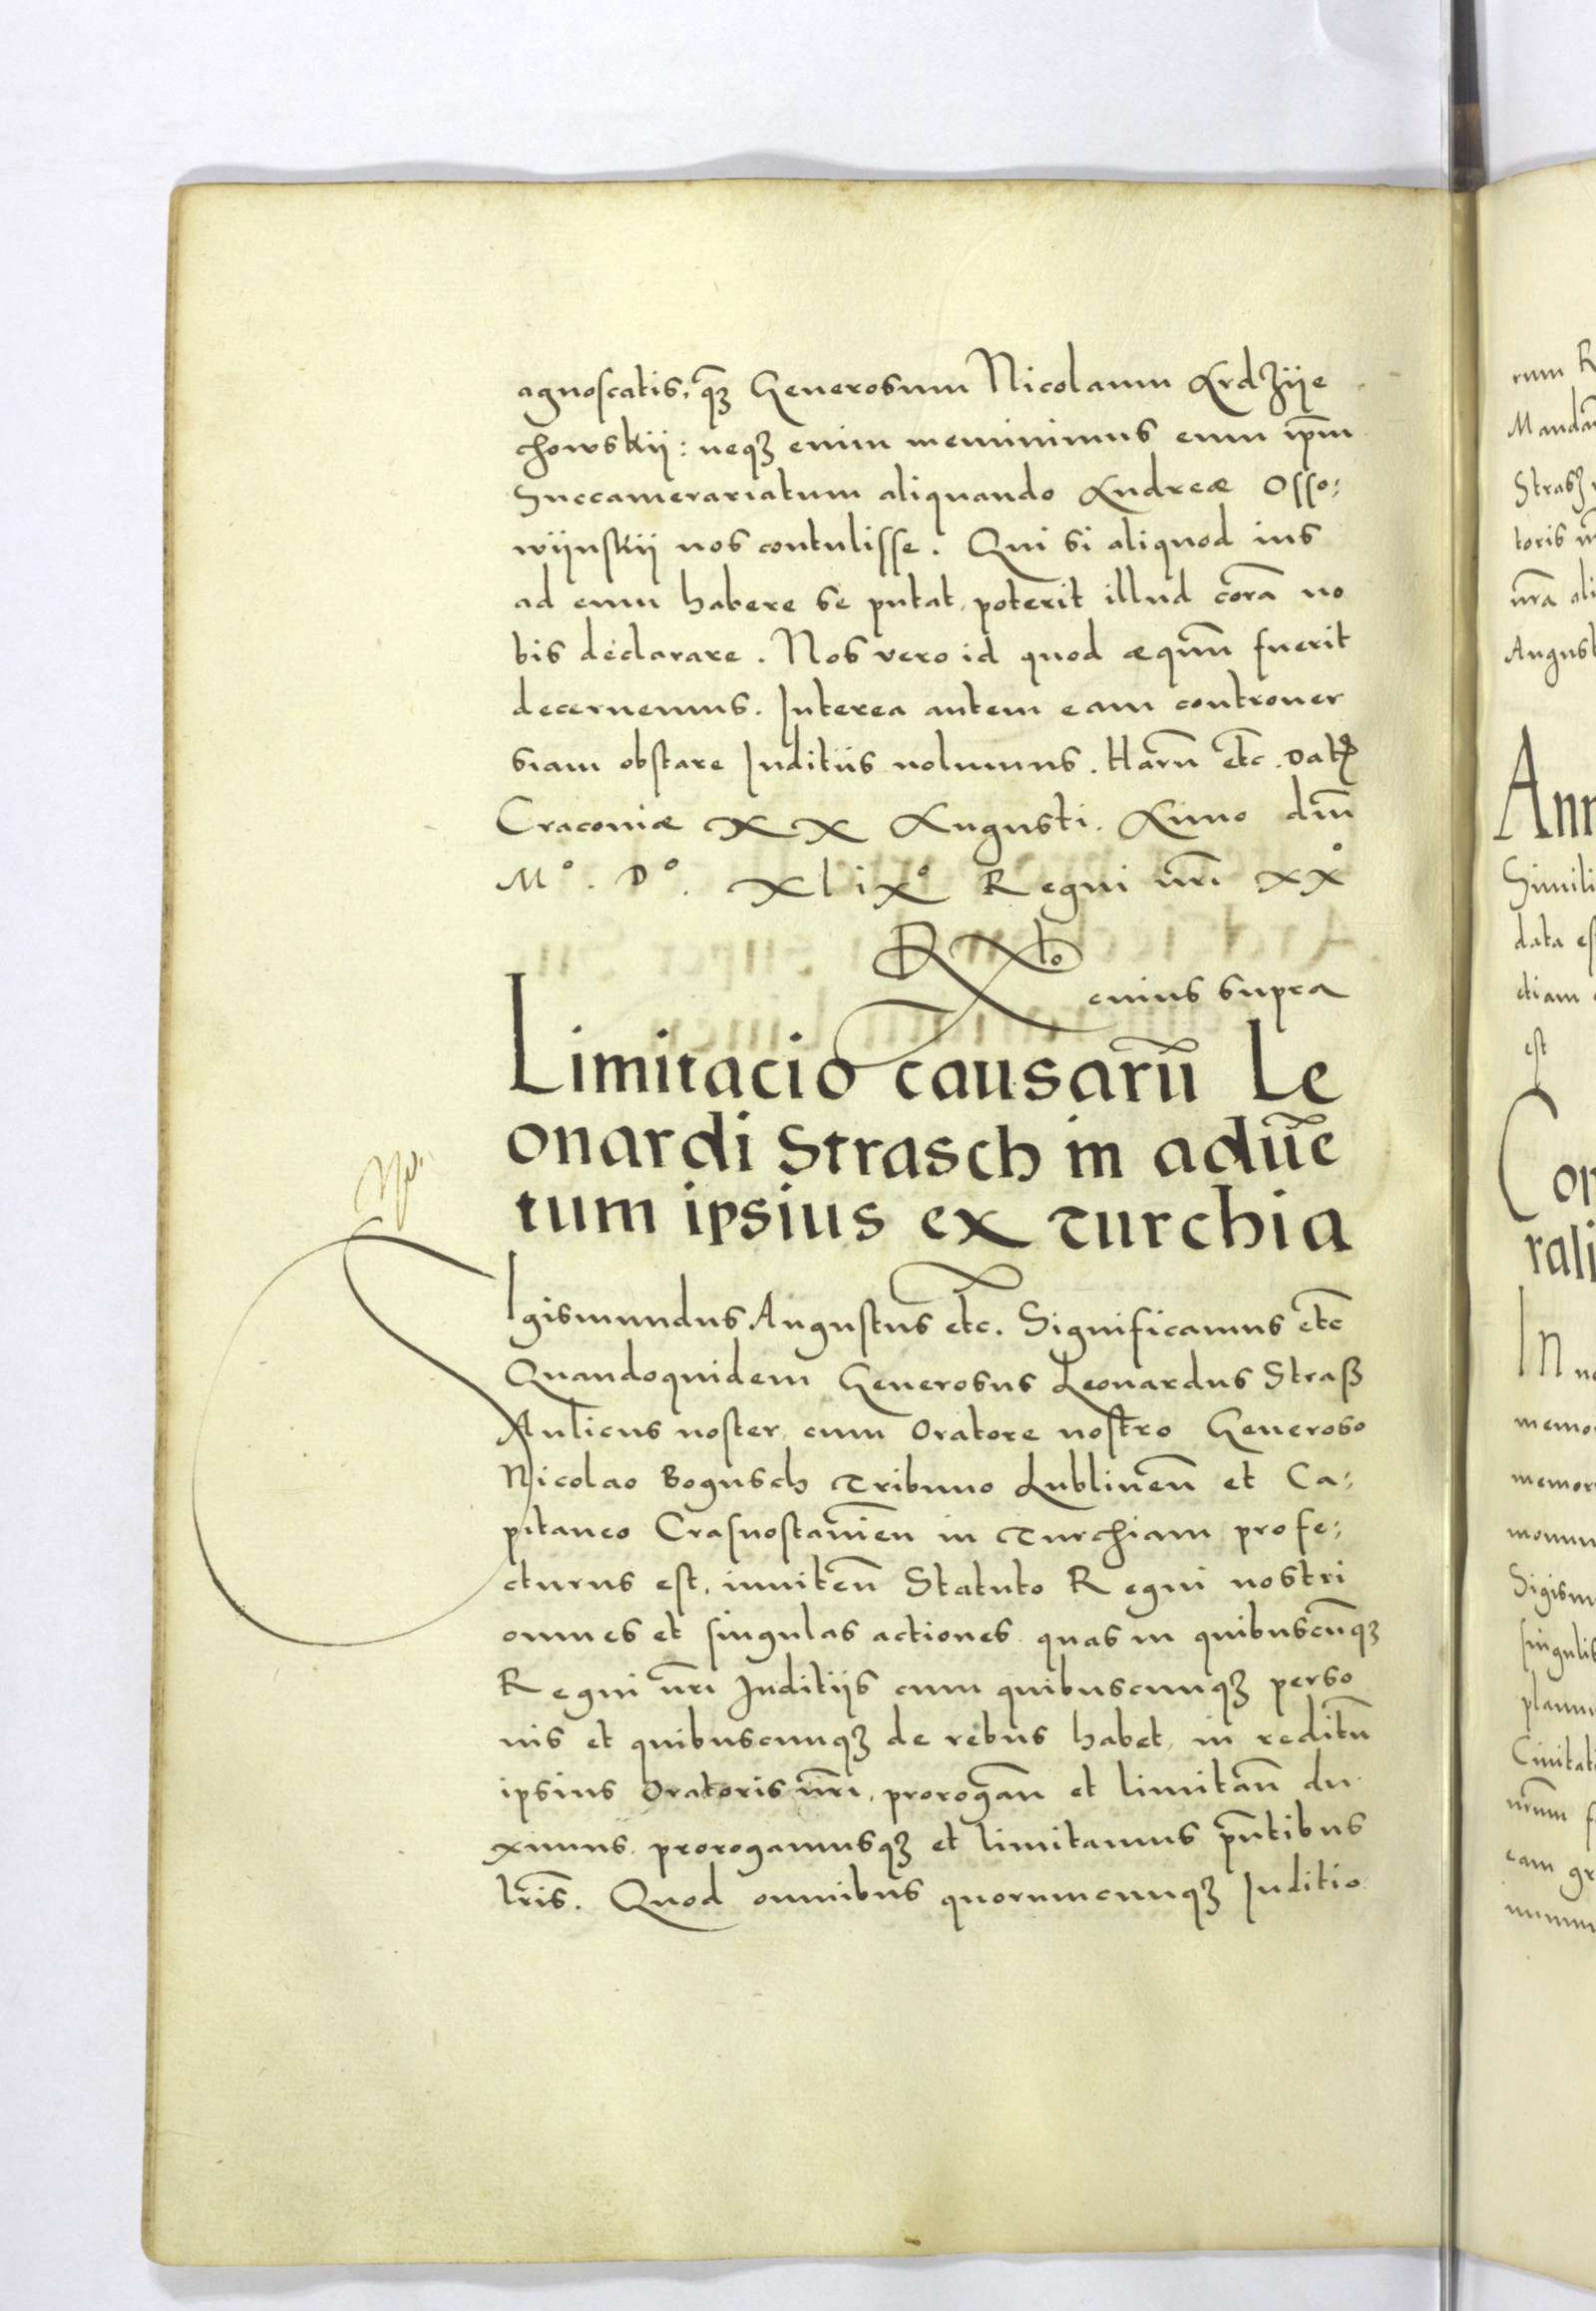 agnoscatis, q̃ꝫ Generosum Nicolaum Ardzÿe
chowskÿ: neqꝫ enim meminimus eum ip̃m
Succamerariatum aliquando Andreæ Osso:
wÿnskÿ nos contulisse. Qui si aliquod ius
ad eum habere se putat, poterit illud corã no
bis declarare. Nos vero id quod æquũ fuerit
decernemus. Interea autem eam controuer
siam obstare Juditiis nolumus. Harũ etc̃. Dat
Cracoviæ XX Augusti. Anno dm̃
M°. D°. XLIX° Regni nr̃i XX°
Rto
cuius supra
Limitacio causarũ Le
onardi Strasch in aduẽ
tum ipsius ex Turchia
Igismundus Augustus etc. Significamus etc̃
Quandoquidem Generosus Leonardus Straß
Aulicus noster, cum Oratore nostro Generoso
Nicolao Bogusch Tribuno Lublineñ et Ca:
pitaneo Crasnostauieñ in Turchiam profe:
cturus est, inniteñ Statuto Regni nostri
omnes et singulas actiones, quas in quibuscũqꝫ
Regni nr̃i Juditÿs cum quibuscunqꝫ perso
nis et quibuscunqꝫ de rebus habet, in reditũ
ipsius Oratoris nr̃i, prorogañ et limitañ du
ximus, prorogamusqꝫ et limitamus pñtibus
lr̃is. Quod omnibus quorumcunqꝫ Juditio
rum R
Mandam̃
Straß
toris nr̃
nr̃a ali
August
Ann
Simili
data es
etiam
est
Con
rali
In no
memor
memor
monum
Sigism
singulis
planum
Ciuitati
nr̃um f
eam gr